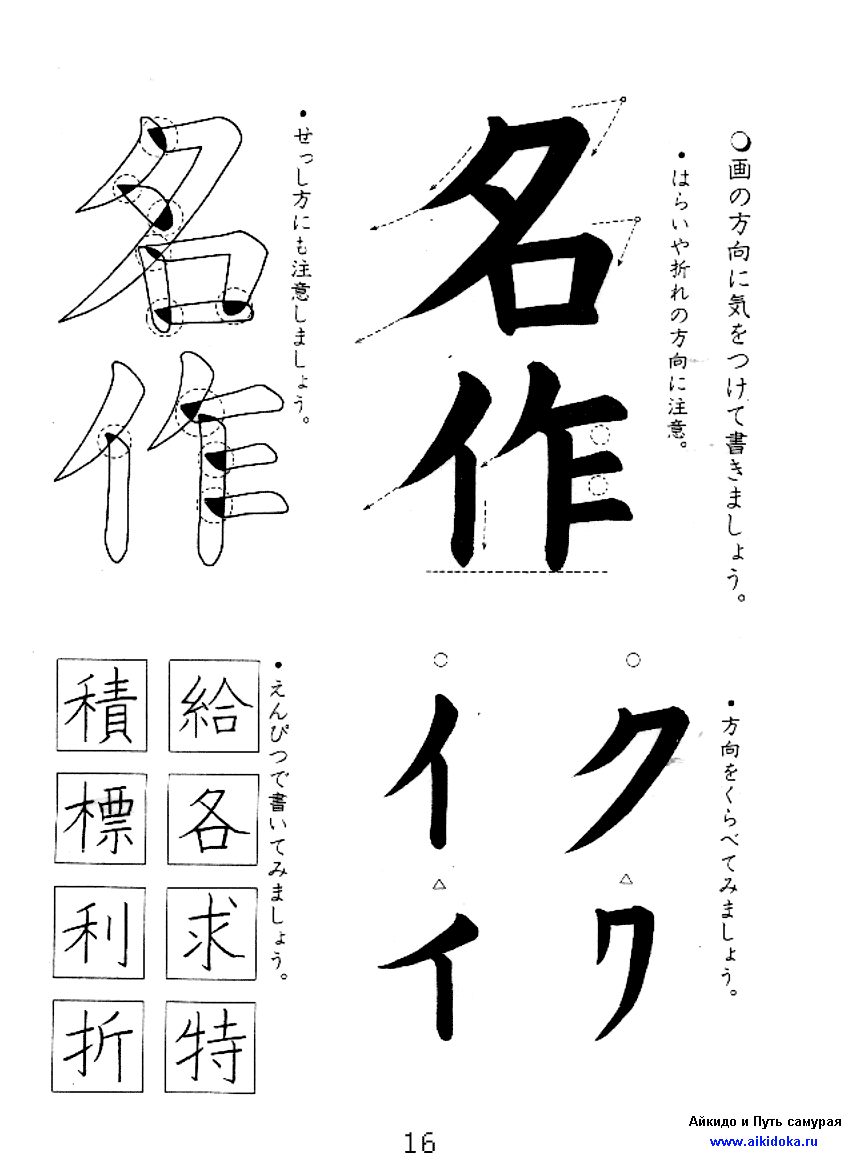 画の方向に気をつけて書きましょう。
・はらいや折れの方向に注意。
名作
・せっし方にも注意しましょう。
名作
・方向をくらべてみましょう。
ク
ク
イ
イ
・えんぴつで書いてみましょう。
給各求特
積標利折
16
Айкидо и Путь самурая
www.aikidoka.ru